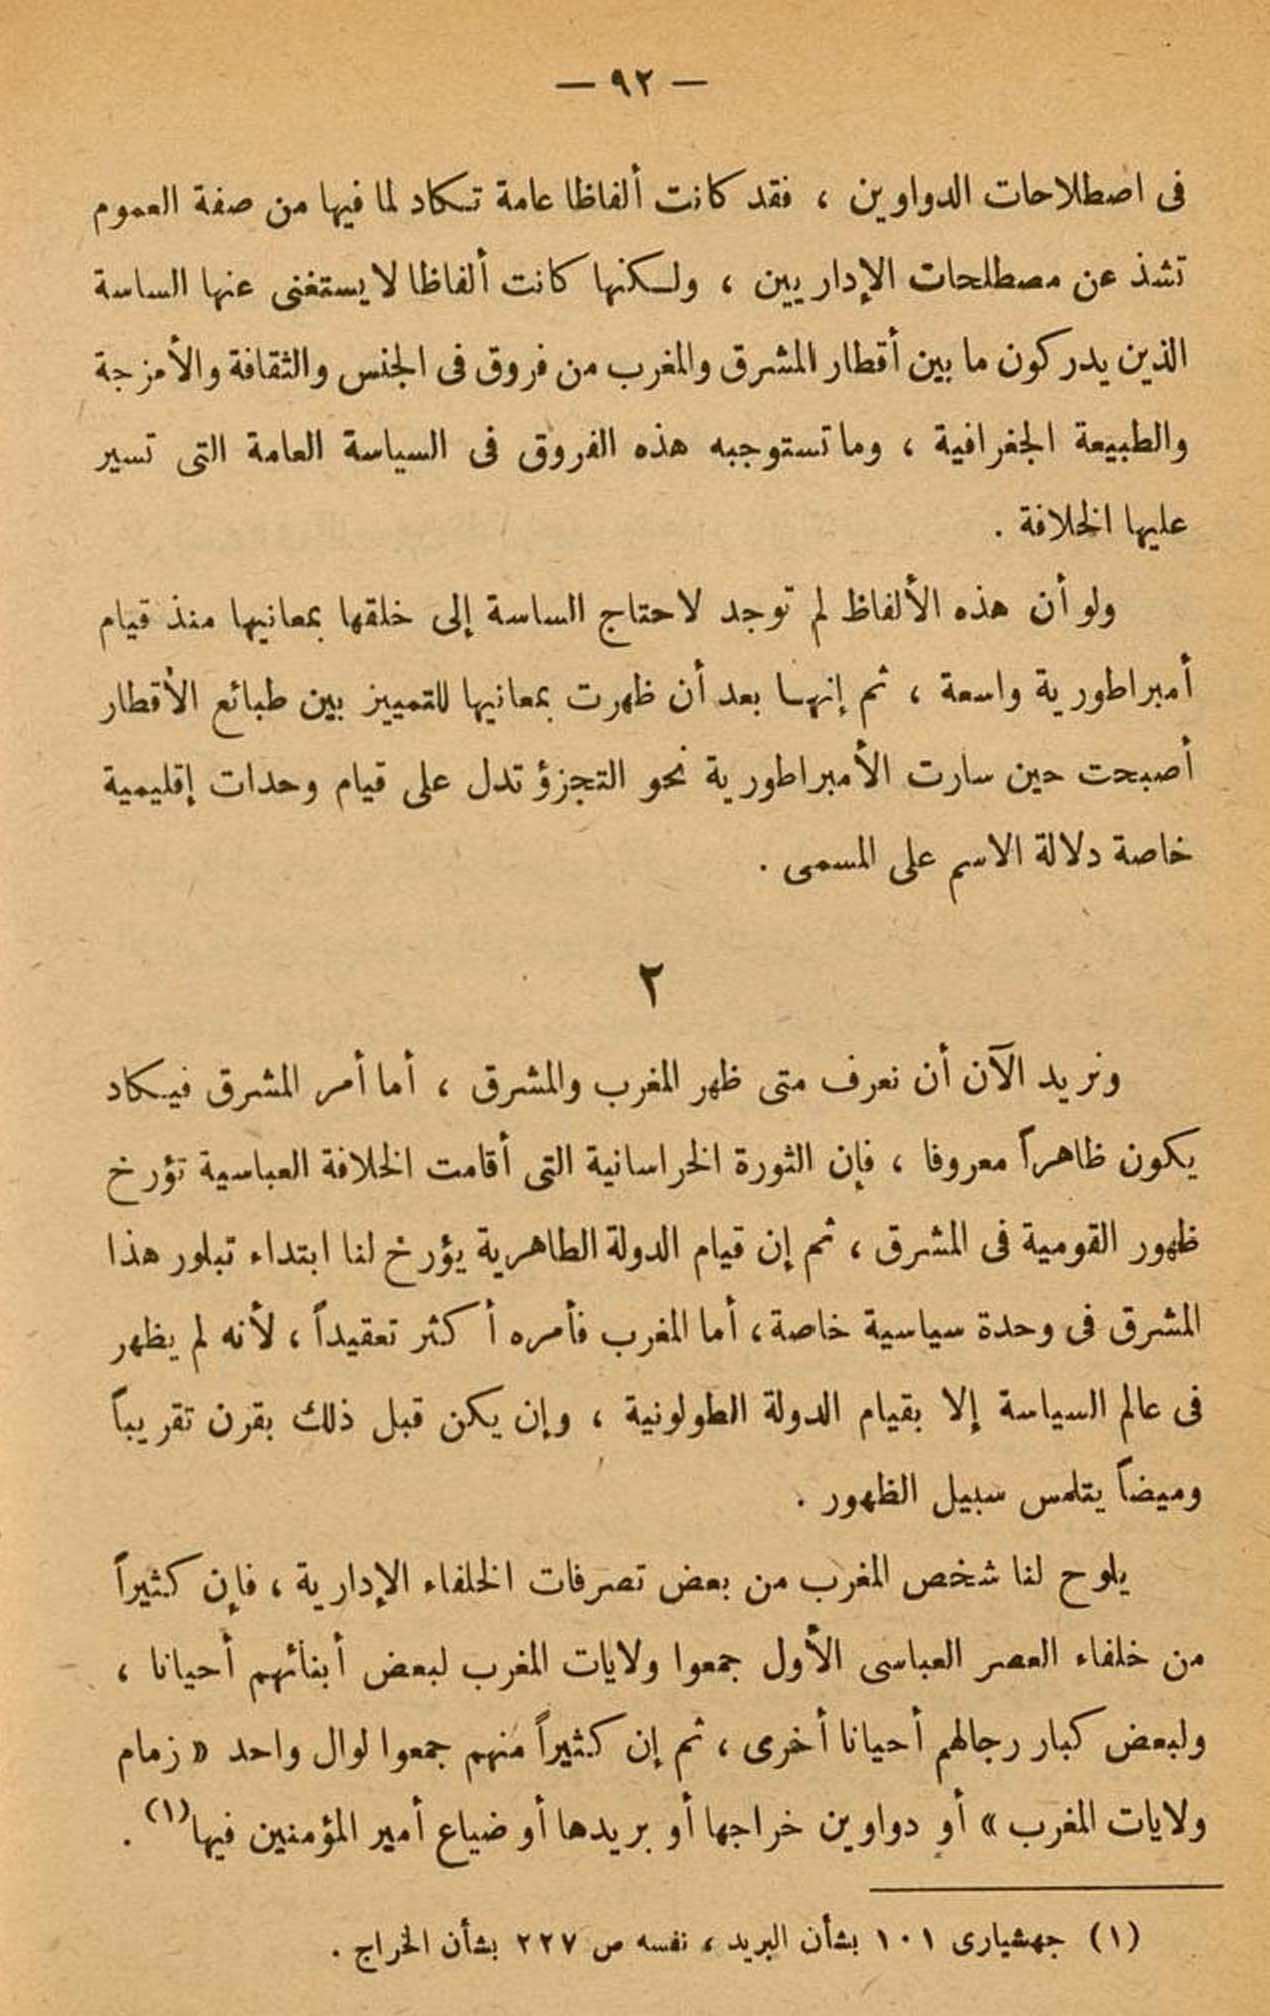 — ٩٢ —
فى اصطلاحات الدواوين ، فقد كانت ألفاظا عامة تكاد لما فيها من صفة العموم
تشذ عن مصطلحات الإداريين ، ولكنها كانت ألفاظا لا يستغنى عنها الساسة
الذين يدركون ما بين أقطار المشرق والمغرب من فروق فى الجنس والثقافة والأمزجة
والطبيعة الجغرافية ، وما تستوجبه هذه الفروق فى السياسة العامة التى تسير
عليها الخلافة .
ولو أن هذه الألفاظ لم توجد لاحتاج الساسة إلى خلقها بمعانيها منذ قيام
أمبراطورية واسعة ، ثم إنها بعد أن ظهرت بمعانيها للتمييز بين طبائع الأقطار
أصبحت حين سارت الأمبراطورية نحو التجزؤ تدل على قيام وحدات إقليمية
خاصة دلالة الاسم على المسمى .
٢
ونريد الآن أن نعرف متى ظهر المغرب والمشرق ، أما أمر المشرق فيكاد
يكون ظاهراً معروفا ، فإن الثورة الخراسانية التى أقامت الخلافة العباسية تؤرخ
ظهور القومية فى المشرق ، ثم إن قيام الدولة الطاهرية يؤرخ لنا ابتداء تبلور هذا
المشرق فى وحدة سياسية خاصة ، أما المغرب فأمره أكثر تعقيداً ، لأنه لم يظهر
فى عالم السياسة إلا بقيام الدولة الطولونية ، وإن يكن قبل ذلك بقرن تقريباً
وميضاً يتلمس سبيل الظهور .
يلوح لنا شخص المغرب من بعض تصرفات الخلفاء الإدارية ، فإن كثيراً
من خلفاء العصر العباسى الأول جمعوا ولايات المغرب لبعض أبنائهم أحيانا ،
ولبعض كبار رجالهم أحيانا أخرى ، ثم إن كثيراً منهم جمعوا لوال واحد « زمام
ولايات المغرب » أو دواوين خراجها أو بريدها أو ضياع أمير المؤمنين فيها(١) .
(١) جهشيارى ١٠١ بشأن البريد ، نفسه ص ٢٢٧ بشأن الخراج .